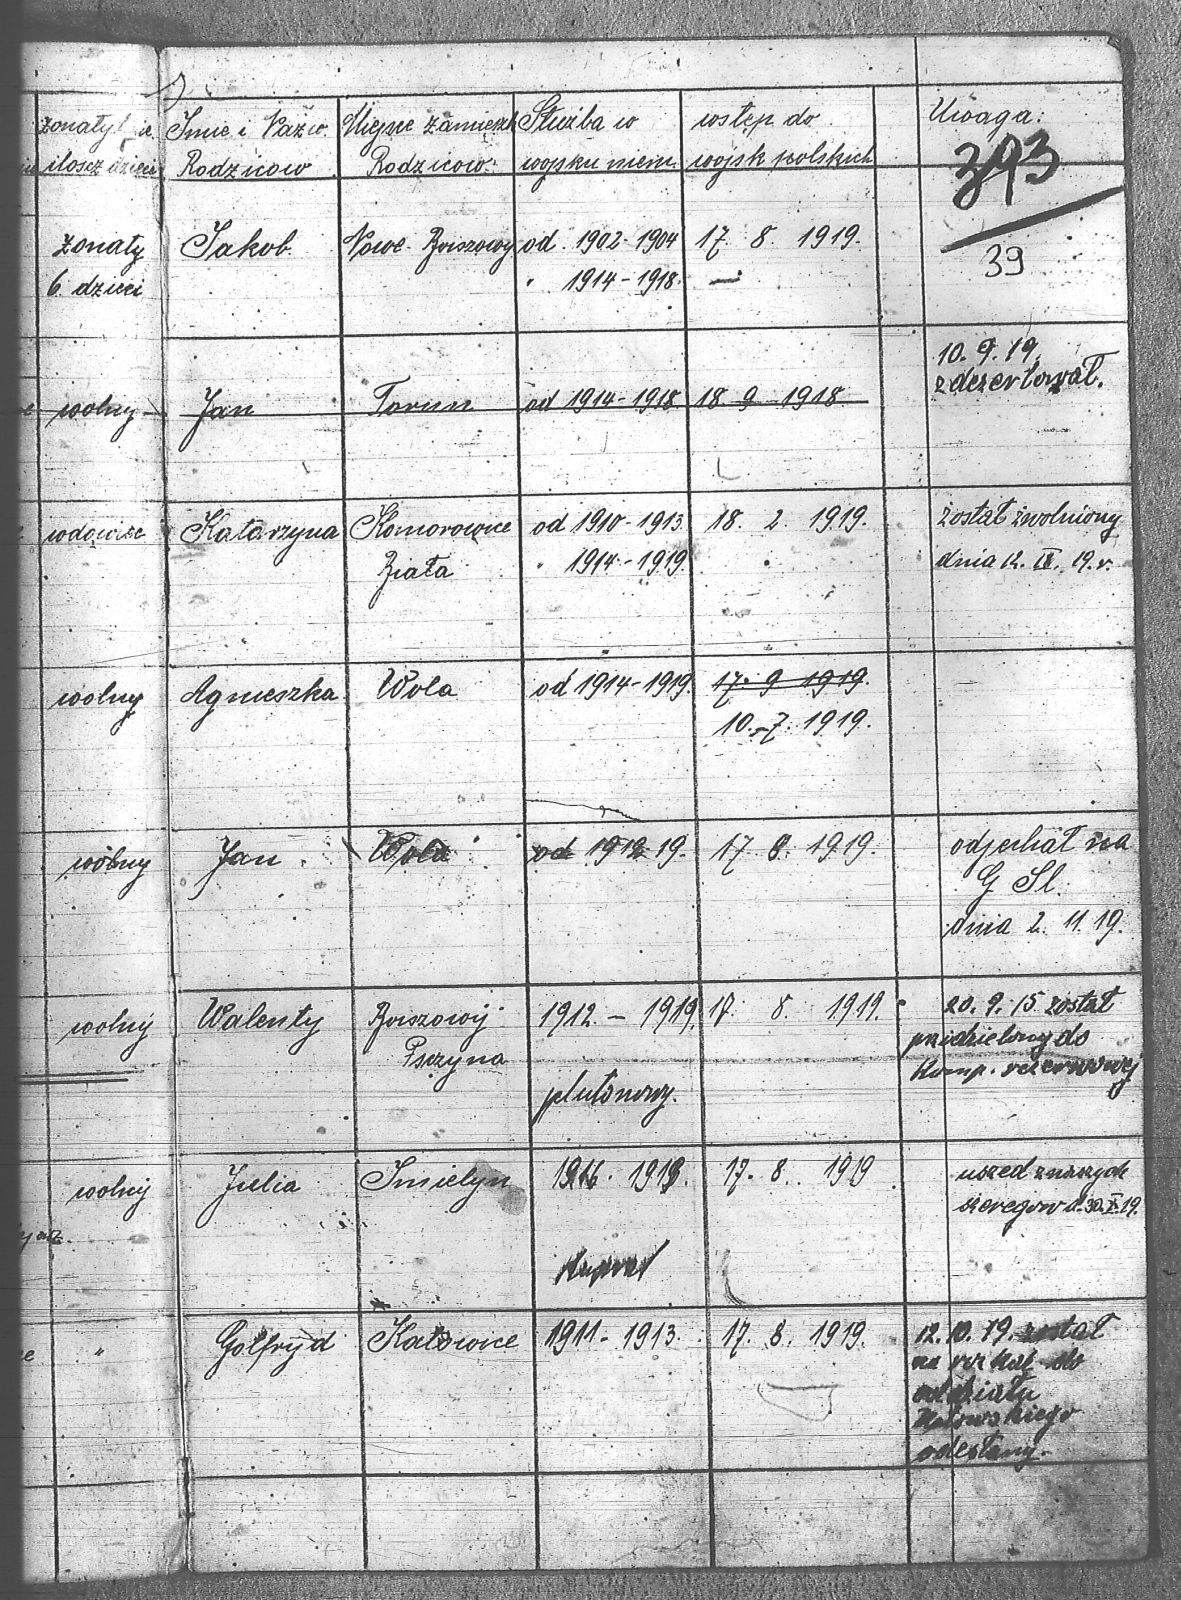 żonaty
Imie i Nazw. Miejsce zamieszk Służba w wstęp do Uwaga:
iloscz dzieci Rodzicow Rodzicow: wojsku niem. wojsk polskich
393
39
żonaty Jakob Nowe-Boiszowy od 1902-1904 17. 8. 1919.
6. dzieci " 1914-1918. —
10. 9. 19.
zdezertował.
wolny Jan Torun od 1914-1918. 18 9 1918
Katarzyna Komorowice od 1910-1913. 18. 2. 1919. został zwolniony
Biała " 1914-1919 " dnia 12. IX. 19. r.
wolny Agnieszka Wola od 1914-1919. 17. 9 1919.
10. 7. 1919.
wolny Jan Wola od 1912 19. 17 8. 1919. odjechał na
G Sl.
dnia 2. 11. 19.
wolny Walenty Boiszowy 1912 - 1919. 17. 8. 1919. 20. 9. 15 został
Psczyna przidzielony do
plutonowy. Komp. rezerwowej
wolny Julia Imielyn 1916. 1919 17. 8. 1919 uszed z naszych
szeregow d. 30. X. 19.
Kapral
" Golfryd Katowice 1911- 1913. 17. 8. 1919. 12. 10. 19 został
na do
oddziału
odesłany.